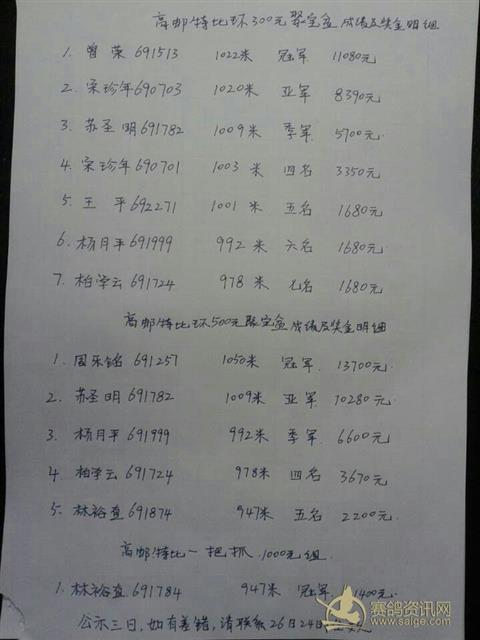 高邮特比环300元聚宝盆成绩及奖金明细
1. 曾荣 691513 1022米 冠军 11080元
2. 宋珍年 690703 1020米 亚军 8390元
3. 苏圣明 691782 1009米 季军 5700元
4. 宋珍年 690701 1003米 四名 3350元
5. 王平 692271 1001米 五名 1680元
6. 杨月平 691999 992米 六名 1680元
7. 柏学云 691724 978米 七名 1680元
高邮特比环500元聚宝盆成绩及奖金明细
1. 周乐铭 691251 1050米 冠军 13700元
2. 苏圣明 691782 1009米 亚军 10280元
3. 杨月平 691999 992米 季军 6600元
4. 柏学云 691724 978米 四名 3670元
5. 林裕直 691874 947米 五名 2200元
高邮特比一把抓 1000元组
1. 林裕直 691784 947米 冠军 1400元
公示三日，如有差错，请联系26日24时
赛鸽资讯网
www.saige.com